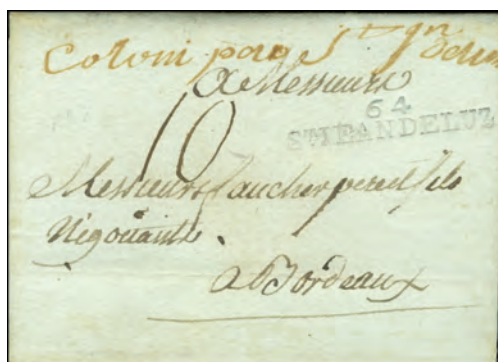 Coloni
a Messieurs
64
ST JEAN DE LUZ
10
Messieurs faucher pere et fils
Negotiants
a Bordeaux